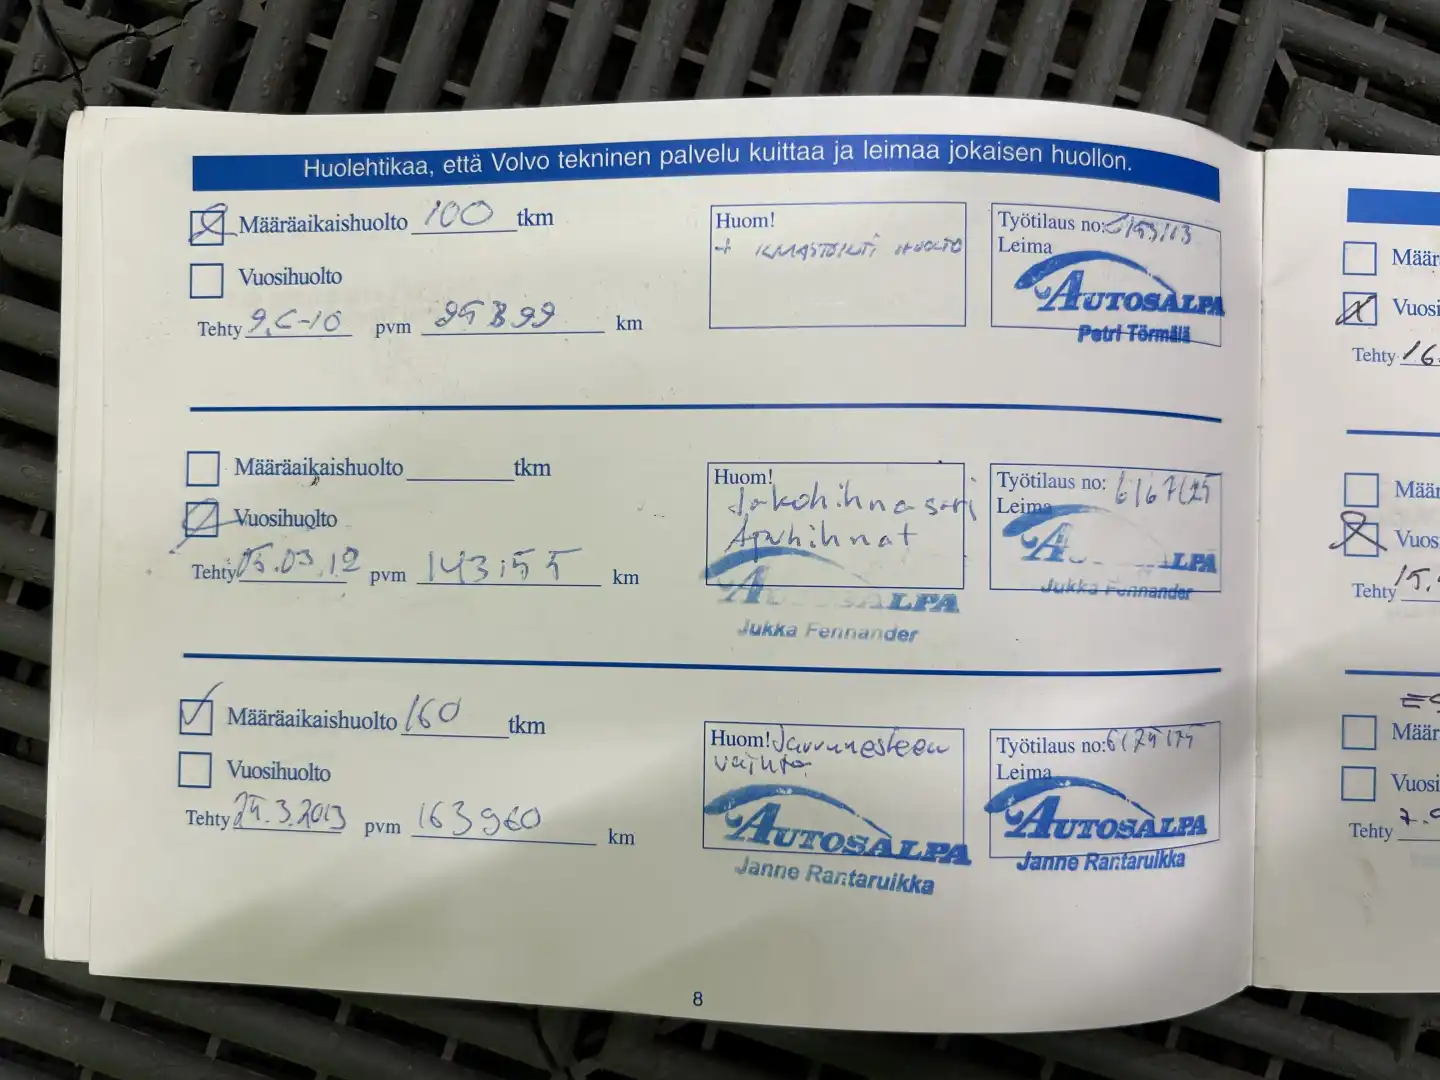 Huolehtikaa, että Volvo tekninen palvelu kuittaa ja leimaa jokaisen huollon.
Määräaikaishuolto 100 tkm
Vuosihuolto
Tehty 9.6-10 pvm 95899 km
Huom!
+ ILMASTOINTI HUOLTO
Työtilaus no:
Leima
AUTOSALPA
Petri Törmälä
Määräaikaishuolto tkm
Vuosihuolto
Tehty 05.03.12 pvm 143155 km
Huom!
Jakohihnasarj
Apuhihnat
AUTOSALPA
Jukka Fennander
Työtilaus no: 6167125
Leima
A LPA
Jukka Fennander
Määräaikaishuolto 160 tkm
Vuosihuolto
Tehty 25.3.2013 pvm 163960 km
Huom! Jarrunesteen
vaihto
AUTOSALPA
Janne Rantaruikka
Työtilaus no: 6175175
Leima
AUTOSALPA
Janne Rantaruikka
8
Määr
Vuosi
Tehty 16.
Määr
Vuos
Tehty 15.
Määr
Vuosi
Tehty 7.9